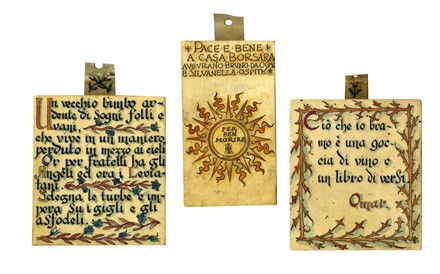 Un vecchio bimbo ar-
dente di Sogni folli e
vani,
che vive in un maniero
perduto in mezzo ai cieli
Or per fratelli ha gli
Angeli ed ora i Levia-
tani
Sdegna le turbe e im-
pera Su i gigli e gli
aSfodeli.
PACE E BENE
A CASA BORSARA
AVGVRANO BRVNO DA
E SILVANELLA OSPITI
PER
BEN
MORIRE
Ciò che io bra-
mo è una goc-
cia di vino e
un libro di verSi
Omar.